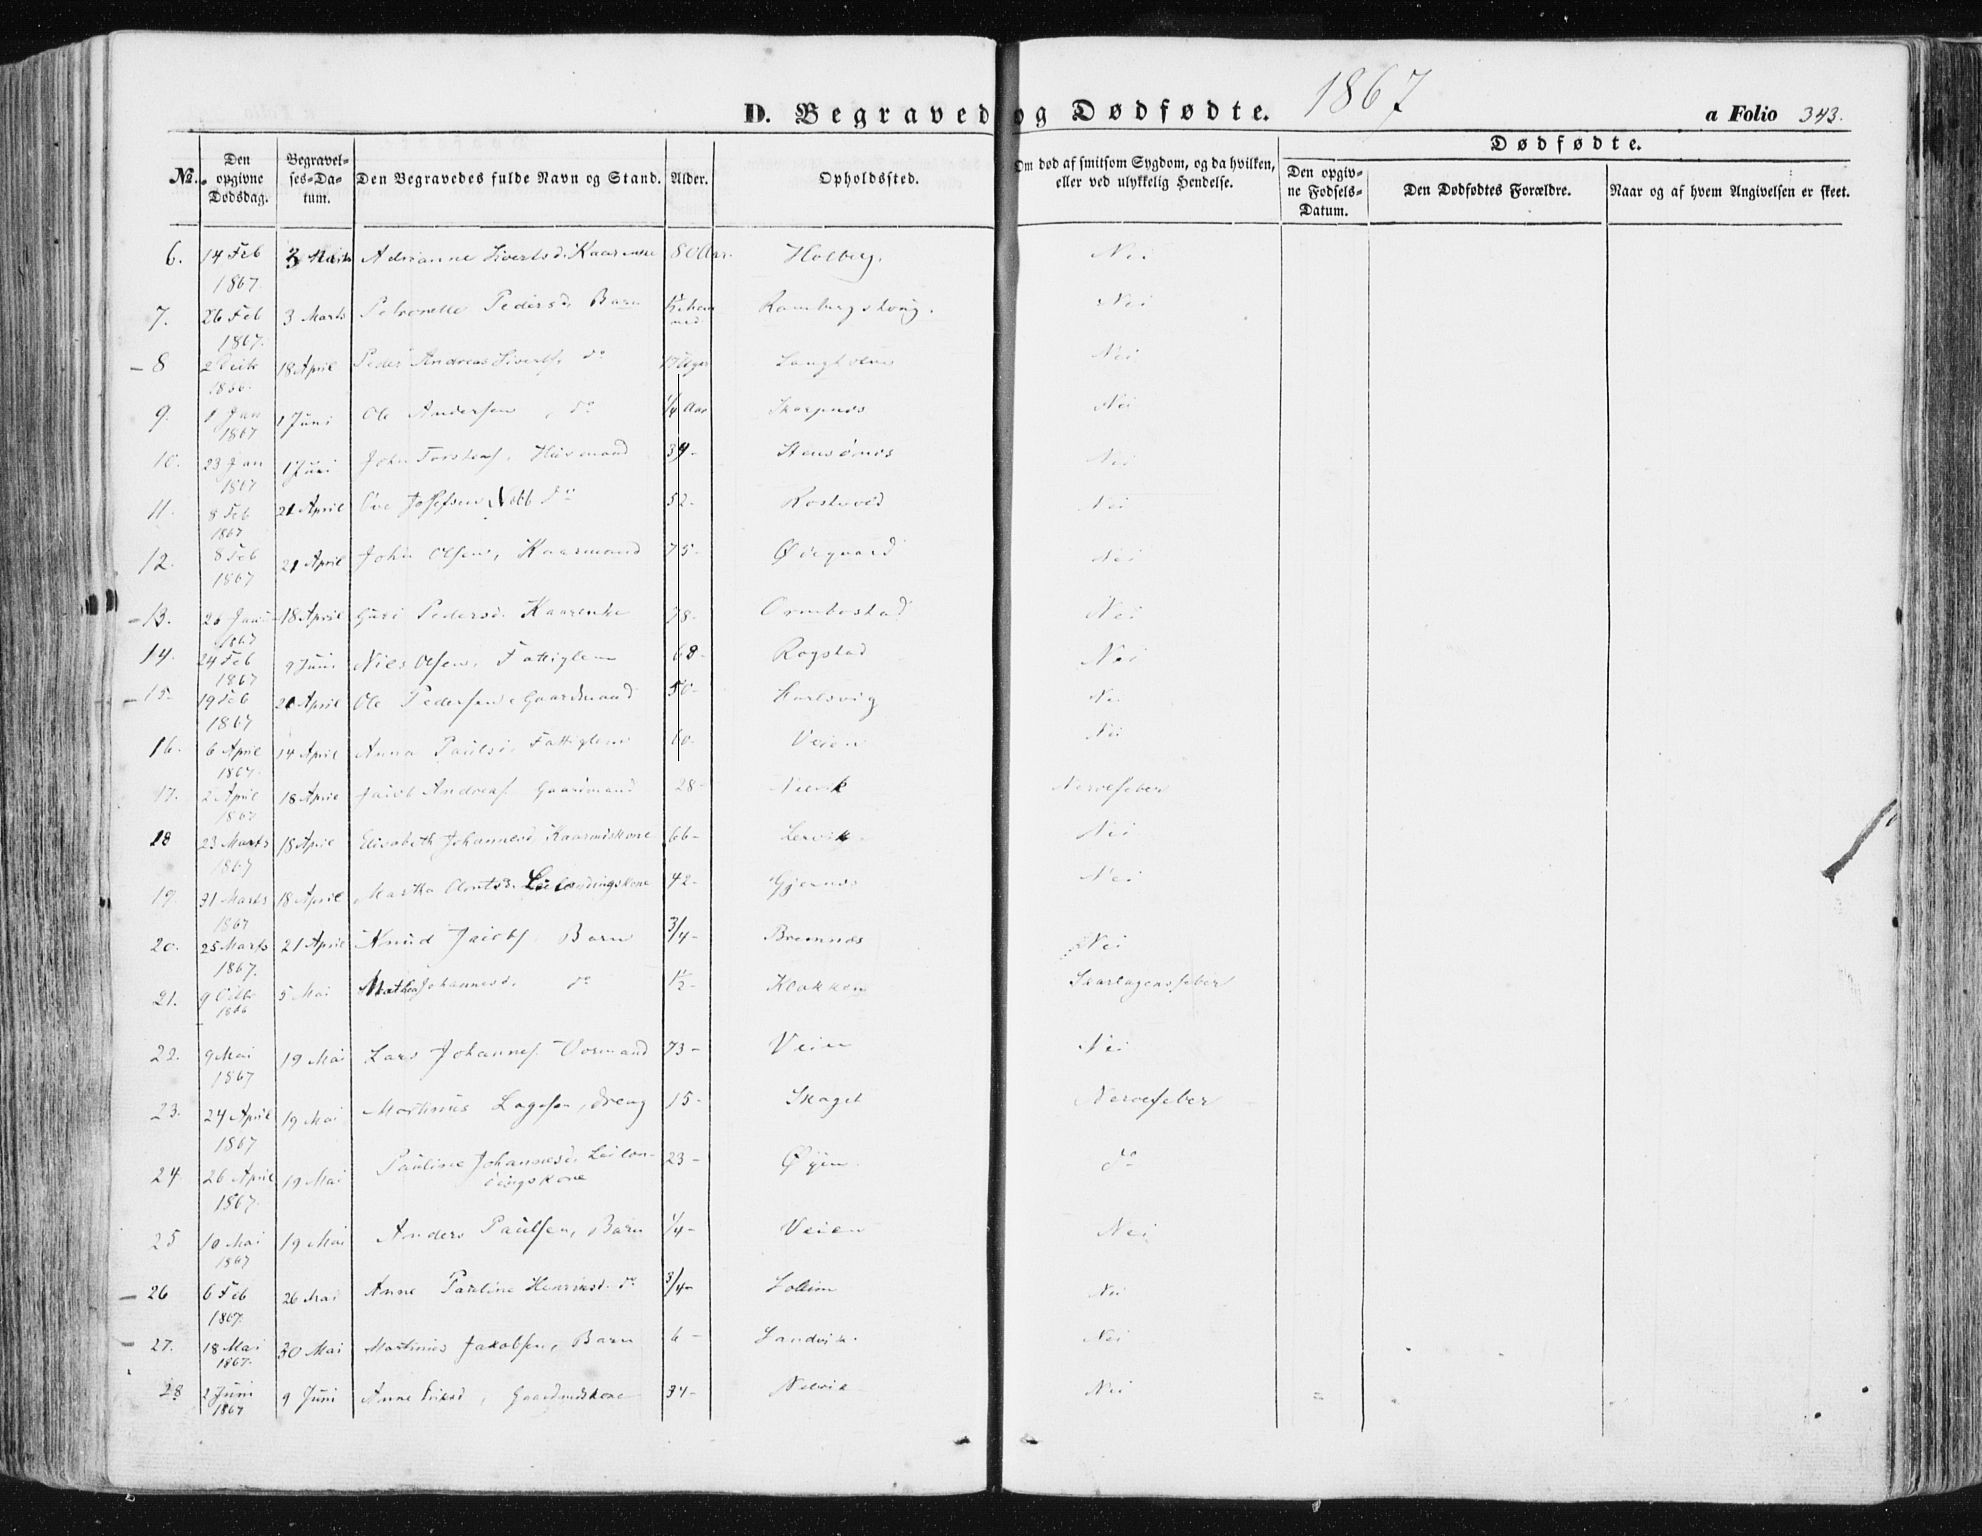 D. Begravede og Dødfødte. 1867
a Folio 343.
Dødfødte.
No. Den opgivne Dødsdag. Begravelses-Datum. Den Begravedes fulde Navn og Stand. Alder. Opholdssted. Om død af smitsom Sygdom, og da hvilken, eller ved ulykkelig Hendelse. Den opgivne Fødsels-Datum. Den Dødfødtes Forældre. Naar og af hvem Angivelsen er skeet.
6. 14 Feb 1867. 3 Marts Adrianne Sivertsd. 80 Aar. Holberg. Nei
7. 26 Feb 1867. 3 Marts Petronelle Pedersd. Barn Nei
8 1866. 18 April Peder Andreas Siverts. do Langholmen Nei
9. 1 Jan 1867 1 Juni Ole Andersen, do 1/4 Aar Skorpnes Nei
10. 23 Jan 1867 1 Juni John Huusmand 34- Stensønes Nei
11. 8 Feb 1867 21 April Ove Josefsen do 52- Nei
12. 8 Feb 1867 21 April John Olsen, Kaarmand 75- Ødegaard Nei
13. 26 Jan 1867 18 April Guri Pedersd. Kaarenke 78- Ormbostad Nei
14. 24 Feb 1867 9 Juni Niels Olsen, Fattiglem 68- Rogstad Nei
15- 19 Feb 1867 21 April Ole Pedersen Gaardmand 50- Karlsvig Nei
16. 6 April 1867. 14 April Anna Paulsd. Fattiglem 60- Veien Nei
17. 2 April 1867 18 April Jacob Andreas. Gaardmand 28- Nelvik Nervefeber
18 23 Marts 1867 18 April Elisabeth Johannesd. Kaarmdskone 66- Lervik- Nei
19. 31 Marts 1867 18 April Martha Leilændingskone 42- Gjernes Nei
20. 25 Marts 1867. 21 April Knud Jacobs. Barn 3/4- Bremnæs Nei
21. 9 1866 5 Mai Johannesd. do 1/2- Klakken Skarlagensfeber
22. 9 Mai 1867 19 Mai Lars Johannes. 73- Veien Nei
23. 24 April 1867 19 Mai Martinus Lagesen, dreng 15- Skaget Nervefeber
24. 26 April 1867. 19 Mai Pauline Johannesd. Leilændingskone 23- Øyen. do
25 10 Mai 1867 19 Mai Anders Paulsen, Barn 1/4- Veien Nei
26 6 Feb 1867. 26 Mai Anne Pauline Henriksd. do 3/4- Solem Nei
27. 18 Mai 1867. 30 Mai Martinus Jakobsen, Barn 6- Sandvik. Nei
28 2 Juni 1867 9 Juni Anne Eriksd, Gaardmdskone 34- Nelvik Nei